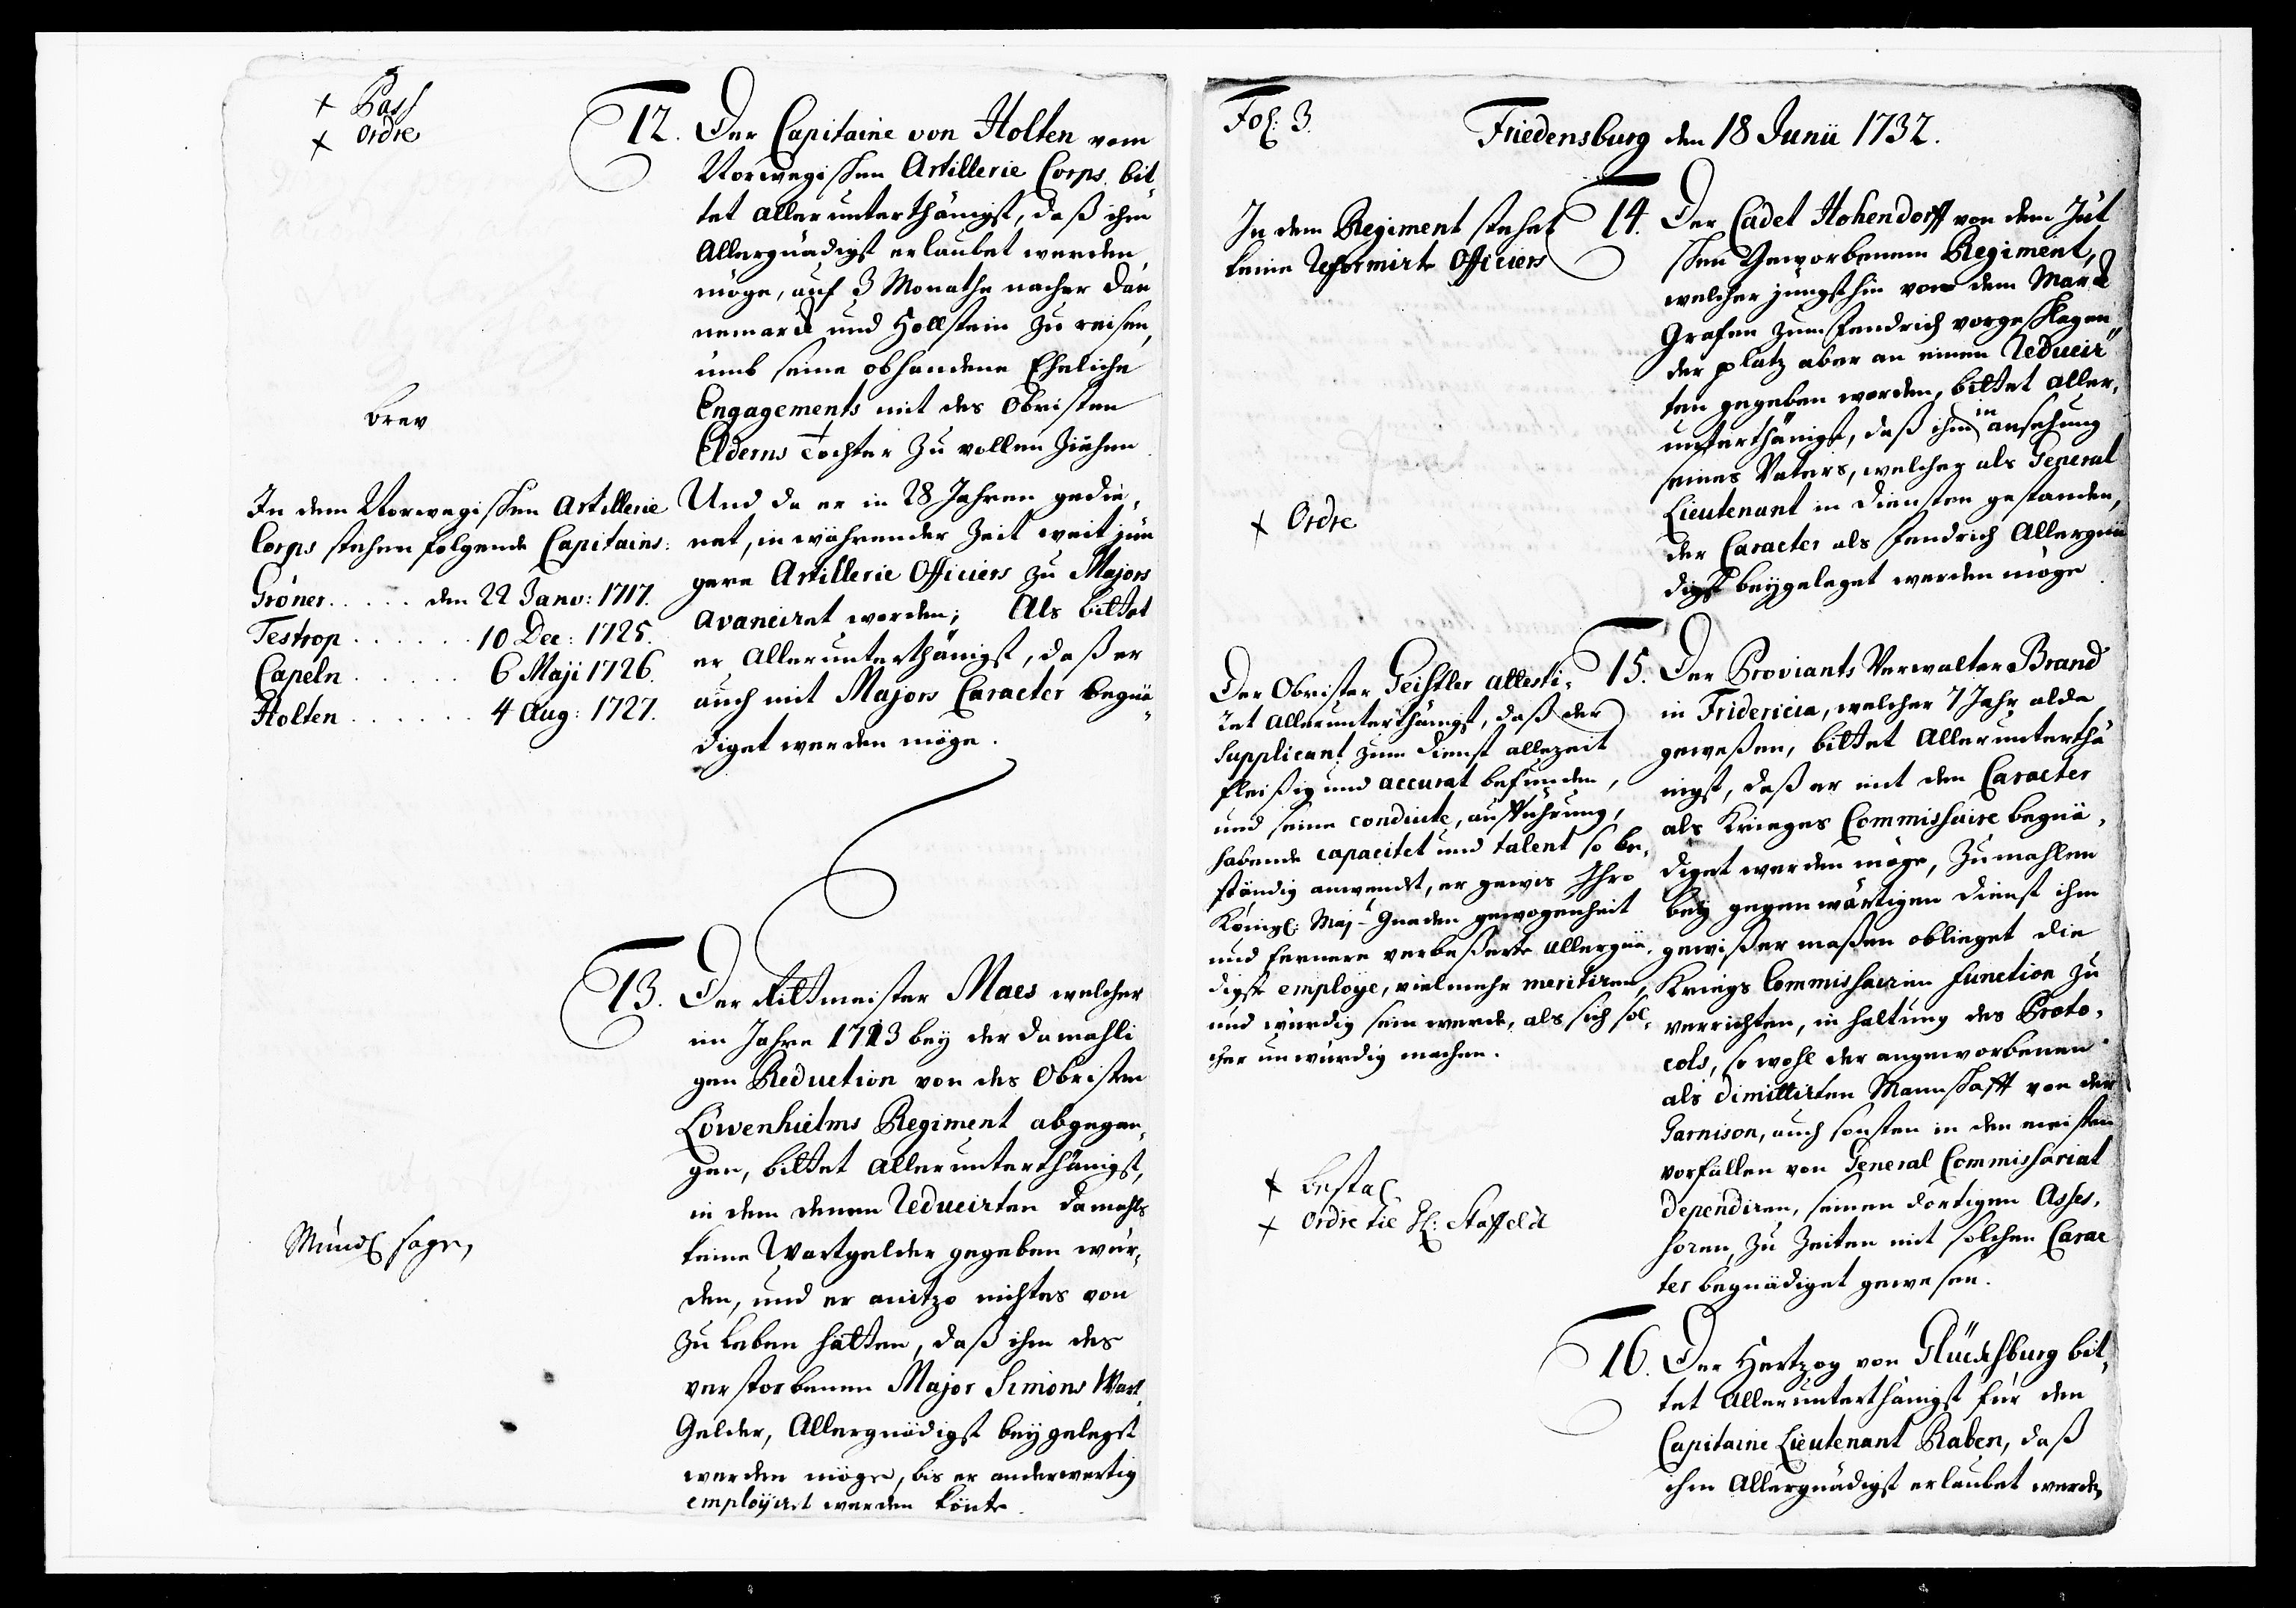 + Pass
+ Ordre
12. Der Capitaine von Holten vom
Norwegischen Artillerie Corps. bit
tet allerunterthänigst, daß ihm
Allergnädigst erlaubet werden
möge, auf 3 Monathe nacher Dän
nemarck und Hollstein zu reisen,
umb seine obhandene Eheliche
Engagements mit des Obristen
Elderns Tochter zu vollenziehen
brev
In dem Norwegischen Artillerie
Corps stehen folgende Capitains:
Gröner ..... den 22 Janv: 1717.
Testrop ...... 10 Dec: 1725.
Capeln ..... 6 Maji 1726.
Holten ...... 4 Aug: 1727.
Und da er in 28 Jahren gedie„
net, in währender Zeit weit jün
gere Artillerie Officiers zu Majors
avanciret worden; Als bittet
er Allerunterthänigst, daß er
auch mit Majors Caracter begnä„
diget werden möge.
13. Der Rittmeister Maes welcher
im Jahre 1713 bey der damahli
gen Reduction von des Obristen
Löwenhielms Regiment abgegan„
gen, bittet allerunterthänigst,
in dem denen Reducirten damahls
keine Wartgelder gegeben wur„
den, und er anitzo nichtes von
zu leben hätten, daß ihm des
verstorbenen Major Simons Wart
Gelder, Allergnädigst beygelegt
werden möge, bis er anderwertig
employiret werden könte.
Fol: 3.
Friedensburg den 18 Junii 1732.
In dem Regiment stehet
keine Reformirte Officiers
14. Der Cadet Hohendorff von dem Jüt
schen Geworbenem Regiment,
welcher jüngsthin von dem Marck
Grafen zum Fendrich vorgeschlagen„
der platz aber an einen Reducir
ten gegeben worden, bittet aller„
unterthänigst, daß ihm in ansehung
seines Vaters, welcher als General
Lieutenant in Diensten gestanden,
der Caracter als Fendrich Allergnä
digst beygeleget werden möge
+ Ordre
Der Obrister Geistler attesti„
ret allerunterthänigst, daß der
Supplicant zum Dienst allezeit
fleißig und accurat befunden,
und seine conduite, aufführung,
habende capacitet und talent so be„
ständig anwendt, er gewis Ihro
Königl: Maj.t Gnaden gewogenheit
und fernere verbeßerte allergnä„
digste employe, vielmehr meritiren,
und würdig sein werde, als sich sol„
cher unwürdig machen.
15. Der Proviants Verwalter Brand
in Fridericia, welcher 7 Jahr alda
geweßen, bittet Allerunterthä
nigst, daß er mit den Caracter
als Krieges Commissaire begnä„
diget werden möge, zumahlen
bey gegenwärtigen Dienst ihm
gewißer maßen oblieget die
Kriegs Commissairen Function zu
verrichten, in haltung des Proto„
cols, so wohl der angeworbenen
als dimittirten Mannschafft von der
Garnison, auch sonsten in den meisten
vorfällen von General Commissariat
dependiren, seinen dortigen Asses„
soren, zu Zeiten mit solchen Carac
ter begnädiget gewesen.
+ Bestal
+ Ordre
16. Der Hertzog von Glücksburg bit„
tet Allerunterthänigst für den
Capitaine Lieutenant Raben, daß
ihm Allergnädigst erlaubet werden